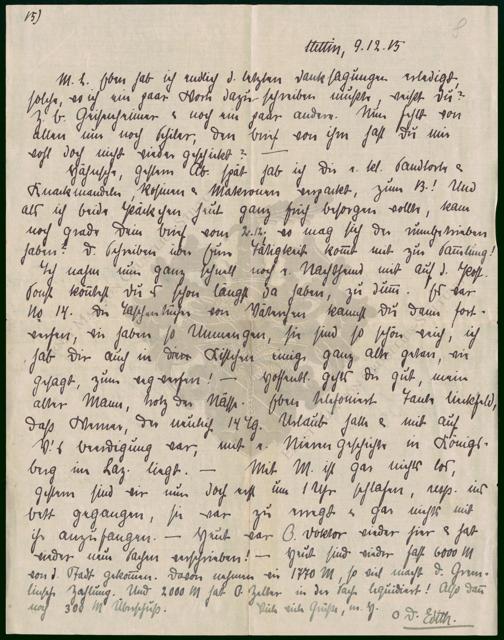 15)
8
Stettin, 9.12.15
M. L. Eben hab ich endlich d. letzten Danksagungen erledigt,
solche, wo ich ein paar Worte dazu schreiben müßte, weißt Du?
Z. b. & noch ein paar andere. Nun fehlt von
allen nur noch Schiler, den brief von ihm hast Du mir
wohl doch nicht wieder geschickt? —
gestern Ab. spät hab ich Dir e. kl. Sandtorte &
Knackmandeln Rosinen & Makronen verpackt, zum B.! Und
als ich beide Päckchen heut ganz früh besorgen wollte, kam
noch grade Dein brief vom 2.12. wo mag sich der rumgetrieben
haben? D. Schreiben über Eure Tätigkeit kommt mit zur Sammlung!
Ich nahm nun ganz schnell noch e. Nachthemd mit auf d. Post.
Sonst könntest Du 's schon längst da haben, zu dumm. Es war
No 14. die Taschentücher von Väterchen kannst Du dann fort-
werfen, wir haben so Unmengen, sie sind so schön weich, ich
hab Dir auch in Kistchen einige ganz alte getan, wie
gesagt, zum wegwerfen! — Hoffentl. gehts Dir gut, mein
alter Mann, trotz der Nässe. Eben telefoniert Tante
daß Werner, der neulich 14 Tg. Urlaub hatte & mit auf
V.'s beerdigung war, mit e. Nierengeschichte in Königs-
berg im Laz. liegt. — Mit M. ist gar nichts los,
gestern sind wir nun doch erst um 1 Uhr schlafen, resp. ins
bett gegangen, sie war zu erregt & gar nichts mit
ihr anzufangen. — Heut war D. Doktor wieder hier & hat
wieder neue Sachen verschrieben! — Heut sind wieder fast 6000 M
von d. Stadt gekommen. Davon nehmen wir 1770 M, so viel macht d.
Zahlung. Und 2000 M hat O. Zeller in der Sache liquidiert! Also dann
noch 300 M Überschuß. Viele viele Grüße, m. H.
D. Edith.